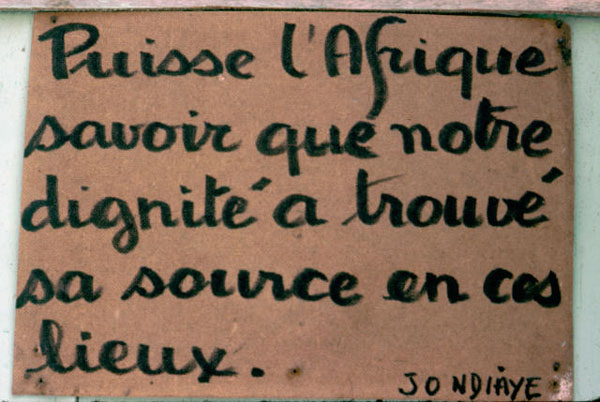 Puisse l'Afrique
savoir que notre
dignité a trouvé
sa source en ces
lieux.
JO NDIAYE